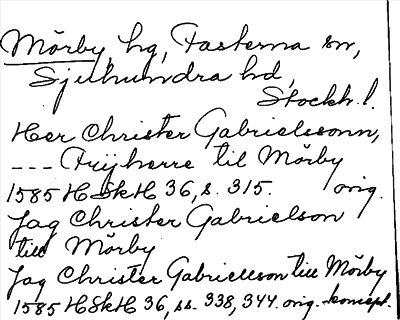 Mörby, hg, Fasterna sn,
Sjuhundra hd,
Stockh. l.
Her Christer Gabrielssonn,
--- Frijherre till Mörby
1585 HSkH 36, s. 315. orig.
Jag Christer Gabrielson
till Mörby
Jag Christer Gabriellson till Mörby
1585 HSkH 36, ss. 338, 344. orig. koncept.